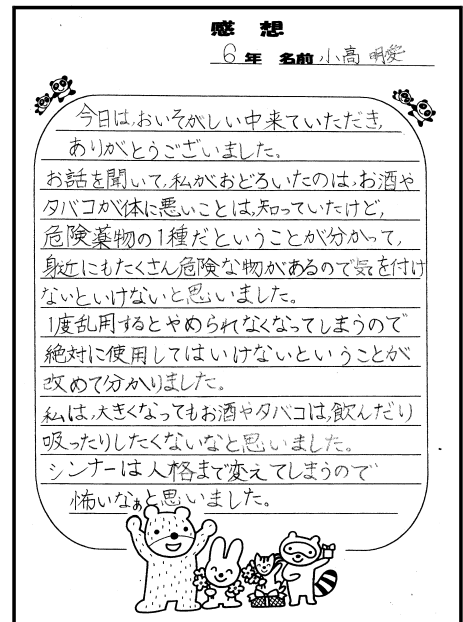 感想
6年 名前 小高 明愛
今日は、おいそがしい中来ていただき、
ありがとうございました。
お話を聞いて、私がおどろいたのは、お酒や
タバコが体に悪いことは、知っていたけど、
危険薬物の1種だということが分かって、
身近にもたくさん危険な物があるので気を付け
ないといけないと思いました。
1度乱用するとやめられなくなってしまうので
絶対に使用してはいけないということが
改めて分かりました。
私は、大きくなってもお酒やタバコは、飲んだり
吸ったりしたくないなと思いました。
シンナーは人格まで変えてしまうので
怖いなぁと思いました。